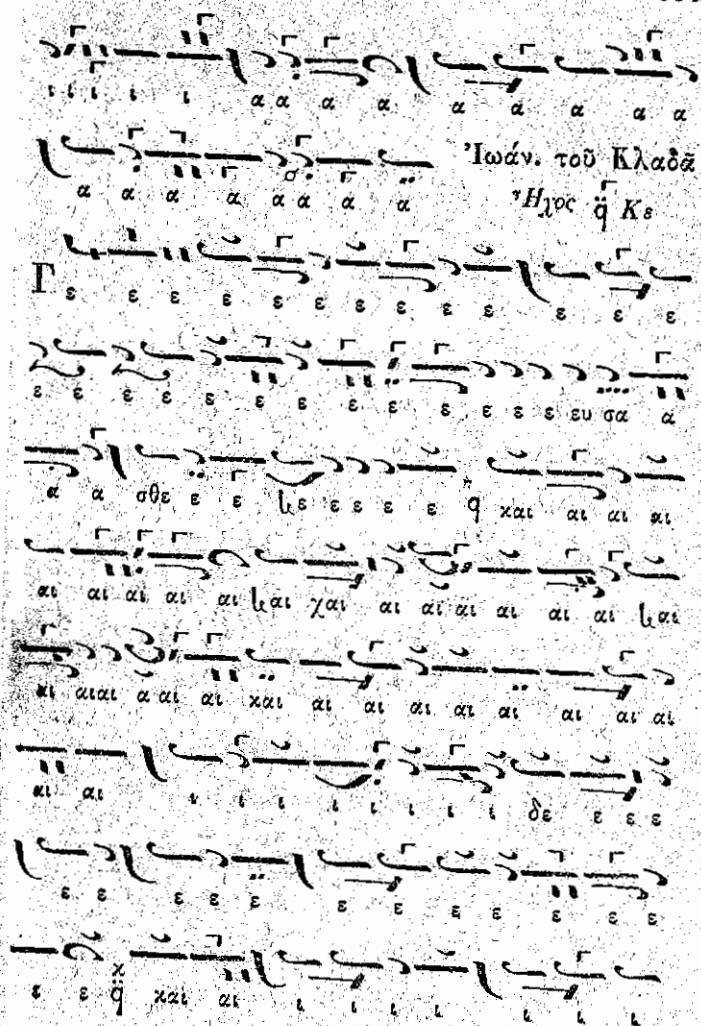 ι ι ι ι ι α α α α α α α α α
α α α α α α α α Ἰωάν. τοῦ Κλαδᾶ
Ἦχος q̈ Κε
Γ ε ε ε ε ε ε ε ε ε ε ε ε ε
ε ε ε ε ε ε ε ε ε ε ε ε ε ευ σα α
α α σθε ε ε ε ε ε ε ε q και αι αι αι
αι αι αι αι αι χαι αι αι αι αι αι αι
αι αιαι α αι αι και αι αι αι αι αι αι αι αι
αι αι ι ι ι ι ι ι ι ι δε ε ε ε
ε ε ε ε ε ε ε ε ε ε ε ε
ε ε q̈ και αι ι ι ι ι ι ι ι